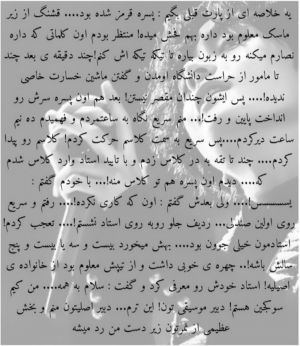 یه خلاصه ای از پارت قبل بگم : پسره قرمز شده بود.... قشنگ از زیر
ماسک معلوم بود داره بهم فحش میده! منتظر بودم اون کلماتی که داره
نصارم میکنه رو به زبون بیاره تا تیکه تیکه اش کنم!چند دقیقه ی بعد چند
تا مامور از حراست دانشگاه اومدن و گفتن ماشین خسارت خاصی
ندیده!.... پس ایشون چندان مقصر نیستن! بعد هم اون پسره سرش رو
انداخت پایین و رفت!.. منم سریع نگاه به ساعتم کردم و فهمیدم ده نیم
ساعت دیرکردم....پس سریع به سمت کلاسم حرکت کردم! کلاسم رو پیدا
کردم.... چند تا تقه به در کلاس زدم و با تایید استاد وارد کلاس شدم
که.... دیدم اون پسره هم تو کلاس منه!... با خودم گفتم :
یسسسسس!.... ولی بعدش گفتم : اون که کاری نکرده!.... رفتم و سریع
روی اولین صندلی... ردیف جلو روبه روی استاد نشستم!.... تعجب کردم!
استادمون خیلی جوون بود.... بهش میخورد بیست و سه یا بیست و پنج
سالش باشه!.. چهره ی خوبی داشت و از تیپش معلوم بود از خانواده ی
اصیلیه! استاد خودش رو معرفی کرد و گفت : سلام به همه.... من کیم
سوکجین هستم! دبیر موسیقی تون! این ترم... دبیر اصلیتون منم و بخش
عظیمی از نمرتون زیر دست من رد میشه